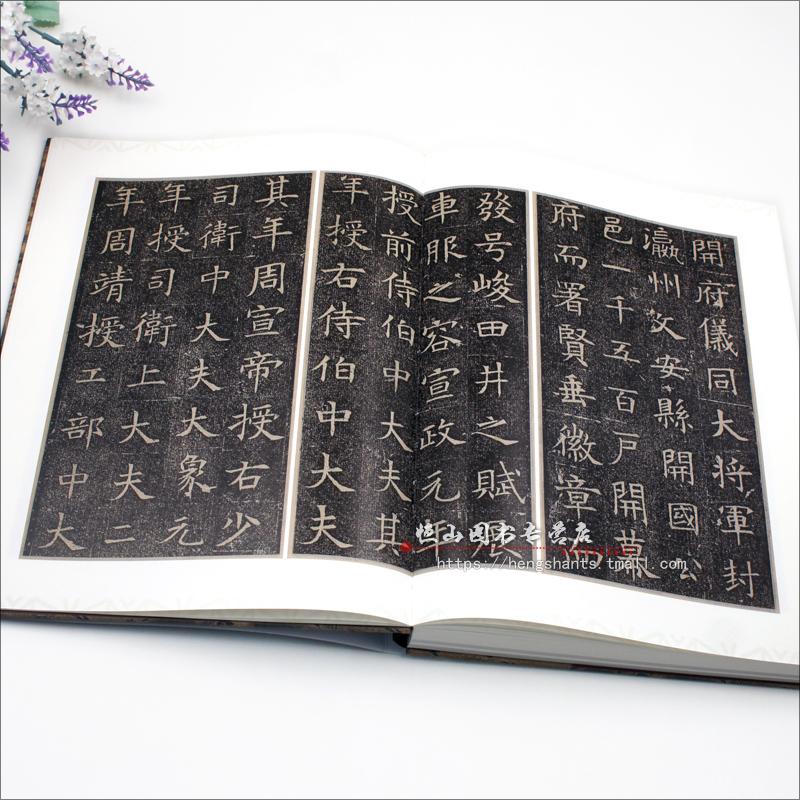 開府儀同大將軍封
瀛州文安縣開國公
邑一千五百戶開幕
府而署賢垂徽章
發号峻田井之賦
車服之容宣政元年
授前侍伯中大夫其
年授右侍伯中大夫
其年周宣帝授右少
司衛中大夫大象元
年授司衛上大夫二
年周靖授工部中大
恒山图书专营店
https://hengshants.tmall.com